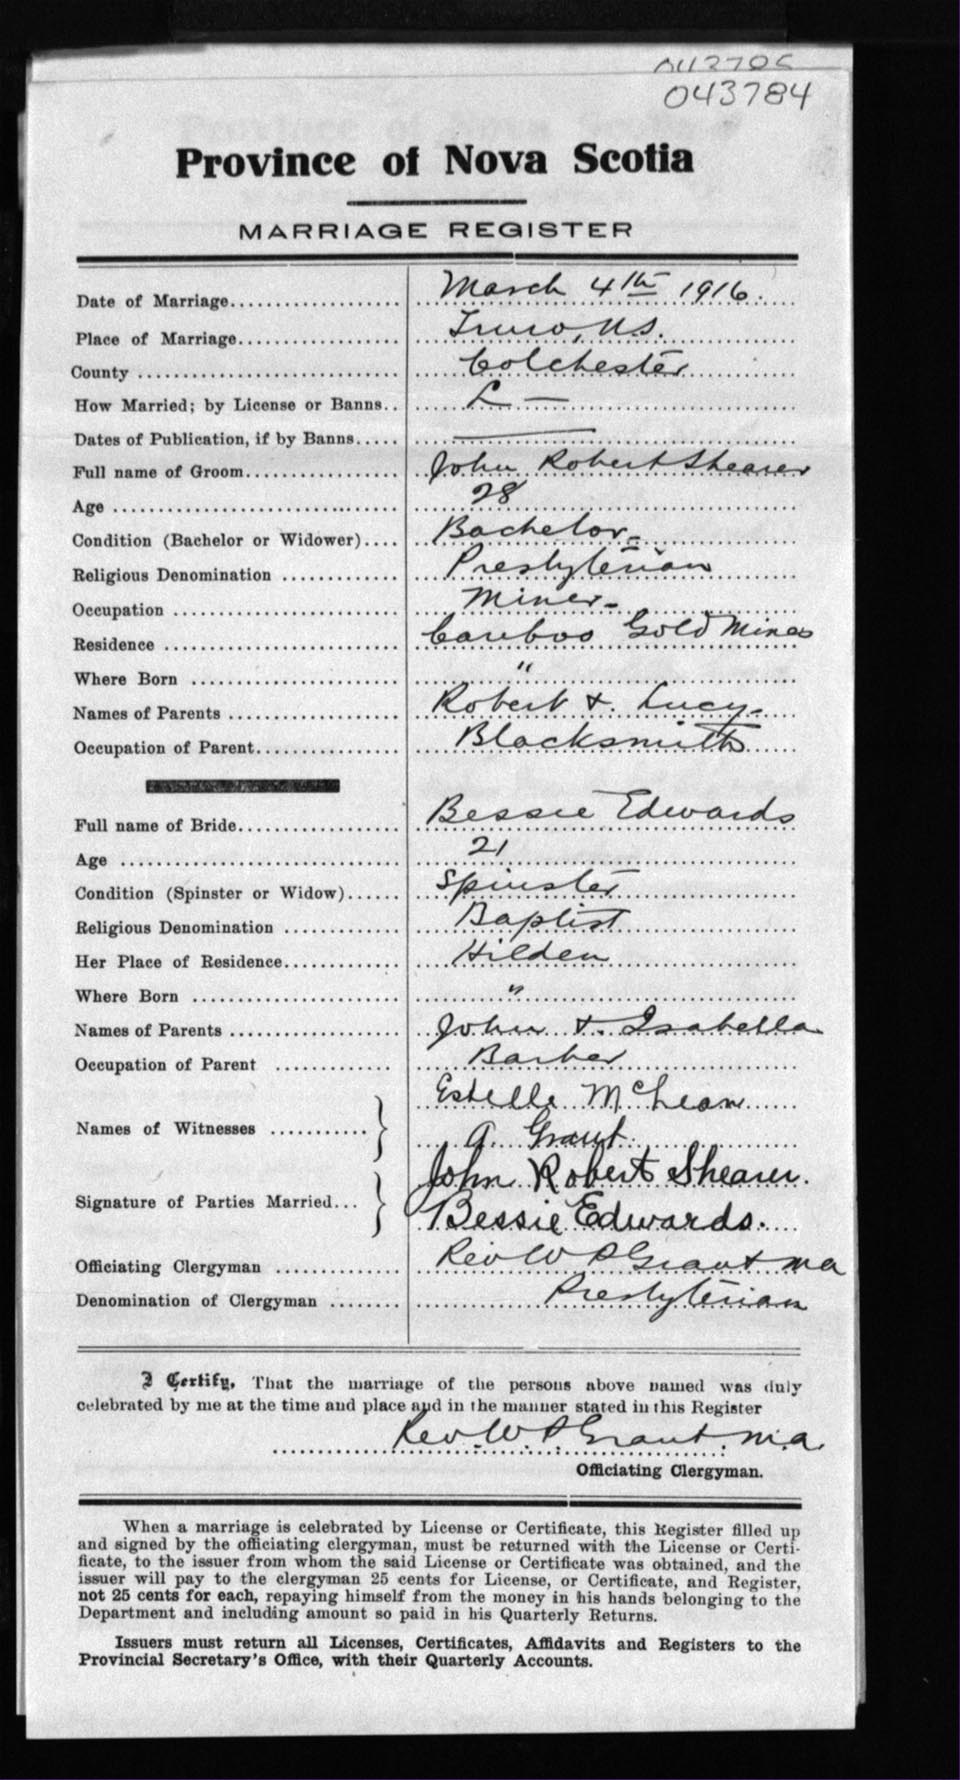 043784
Province of Nova Scotia
MARRIAGE REGISTER
Date of Marriage.................. March 4th 1916.
Place of Marriage................. Truro, N.S.
County ........................... Colchester
How Married; by License or Banns.. L —
Dates of Publication, if by Banns..... —
Full name of Groom................ John Robert Shearer
Age .............................. 28
Condition (Bachelor or Widower).... Bachelor
Religious Denomination ............ Presbyterian
Occupation ....................... Miner
Residence ........................ Cariboo Gold Mines
Where Born ....................... "
Names of Parents ................. Robert & Lucy
Occupation of Parent............... Blacksmith
Full name of Bride................ Bessie Edwards
Age .............................. 21
Condition (Spinster or Widow)...... Spinster
Religious Denomination ............ Baptist
Her Place of Residence............. Hilden
Where Born ....................... "
Names of Parents ................. John & Isabella
Occupation of Parent ............. Barber
Names of Witnesses ........... Estelle McLean
A. Grant
Signature of Parties Married... John Robert Shearer.
Bessie Edwards.
Officiating Clergyman ............. Rev W P Grant M A
Denomination of Clergyman ........ Presbyterian
I Certify, That the marriage of the persons above named was duly
celebrated by me at the time and place and in the manner stated in this Register
Rev. W. P. Grant. M.A.
Officiating Clergyman.
When a marriage is celebrated by License or Certificate, this Register filled up
and signed by the officiating clergyman, must be returned with the License or Certi-
ficate, to the issuer from whom the said License or Certificate was obtained, and the
issuer will pay to the clergyman 25 cents for License, or Certificate, and Register,
not 25 cents for each, repaying himself from the money in his hands belonging to the
Department and including amount so paid in his Quarterly Returns.
Issuers must return all Licenses, Certificates, Affidavits and Registers to the
Provincial Secretary's Office, with their Quarterly Accounts.